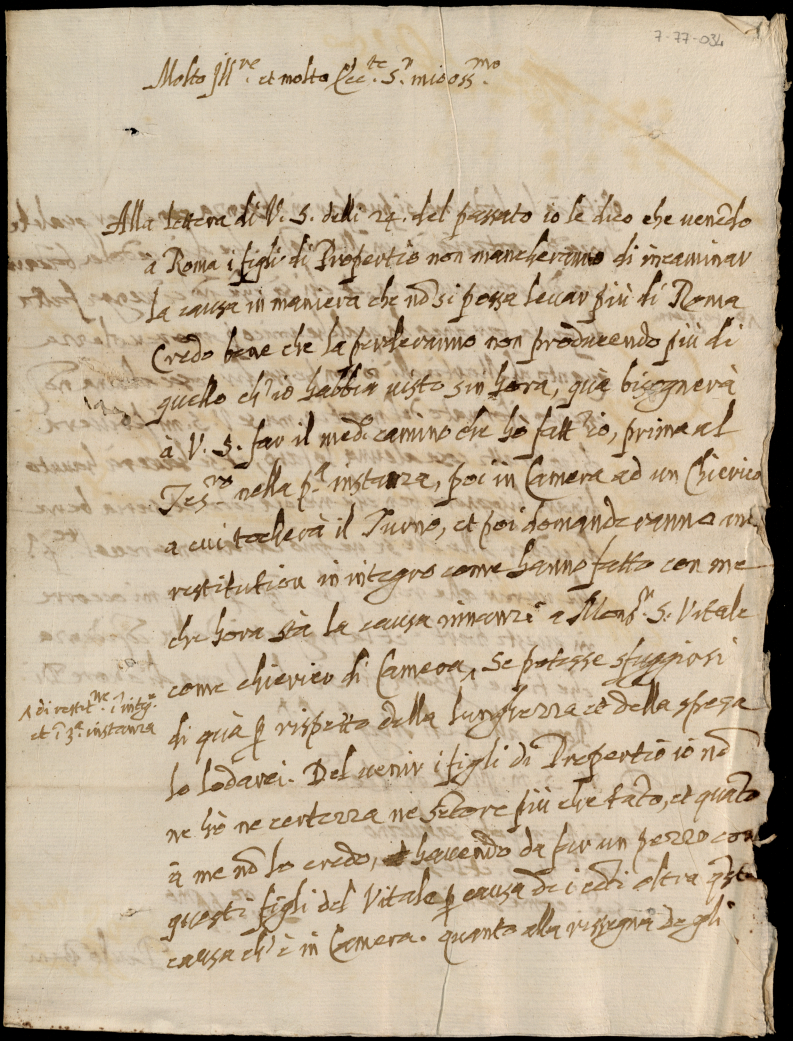 7-77-034
Molto Ill.re et molto Ecc.te S.r mio oss.mo
Alla lettera di V. S. delli 24. del passato io le dico che venēdo
a Roma i figli di Propertio non mancheranno di incaminar
la causa in maniera che nō si possa levar più di Roma
Credo bene che la perderanno non producendo più di
quello ch'io habbia visto sin hora, qua bisognerà
à V. S. far il med.o camino che ho fatt'io, prima al
Tes.ro nella p.a instanza, poi in Camera ad un Chierico
a cui toccherà il Turno, et poi domanderanno
restitution in integro come hanno fatto con me
che hora stà la causa innanzi a Mons.r S. Vitale
come chierico di Camera, Se potesse sfuggirsi
^ di restit.ne ī integ.o
et ī 3.a instanza
di quà p rispetto della lunghezza et della spesa
lo lodarei. Del venir i figli di Propertio io nō
ne hò ne certezza ne sētore più che tāto, et quāto
à me nō lo credo, havendo da far un pezzo con
questi figli del Vitale p causa de i oltra q̄sta
causa ch'è in Camera. quanto alla rissegna degli